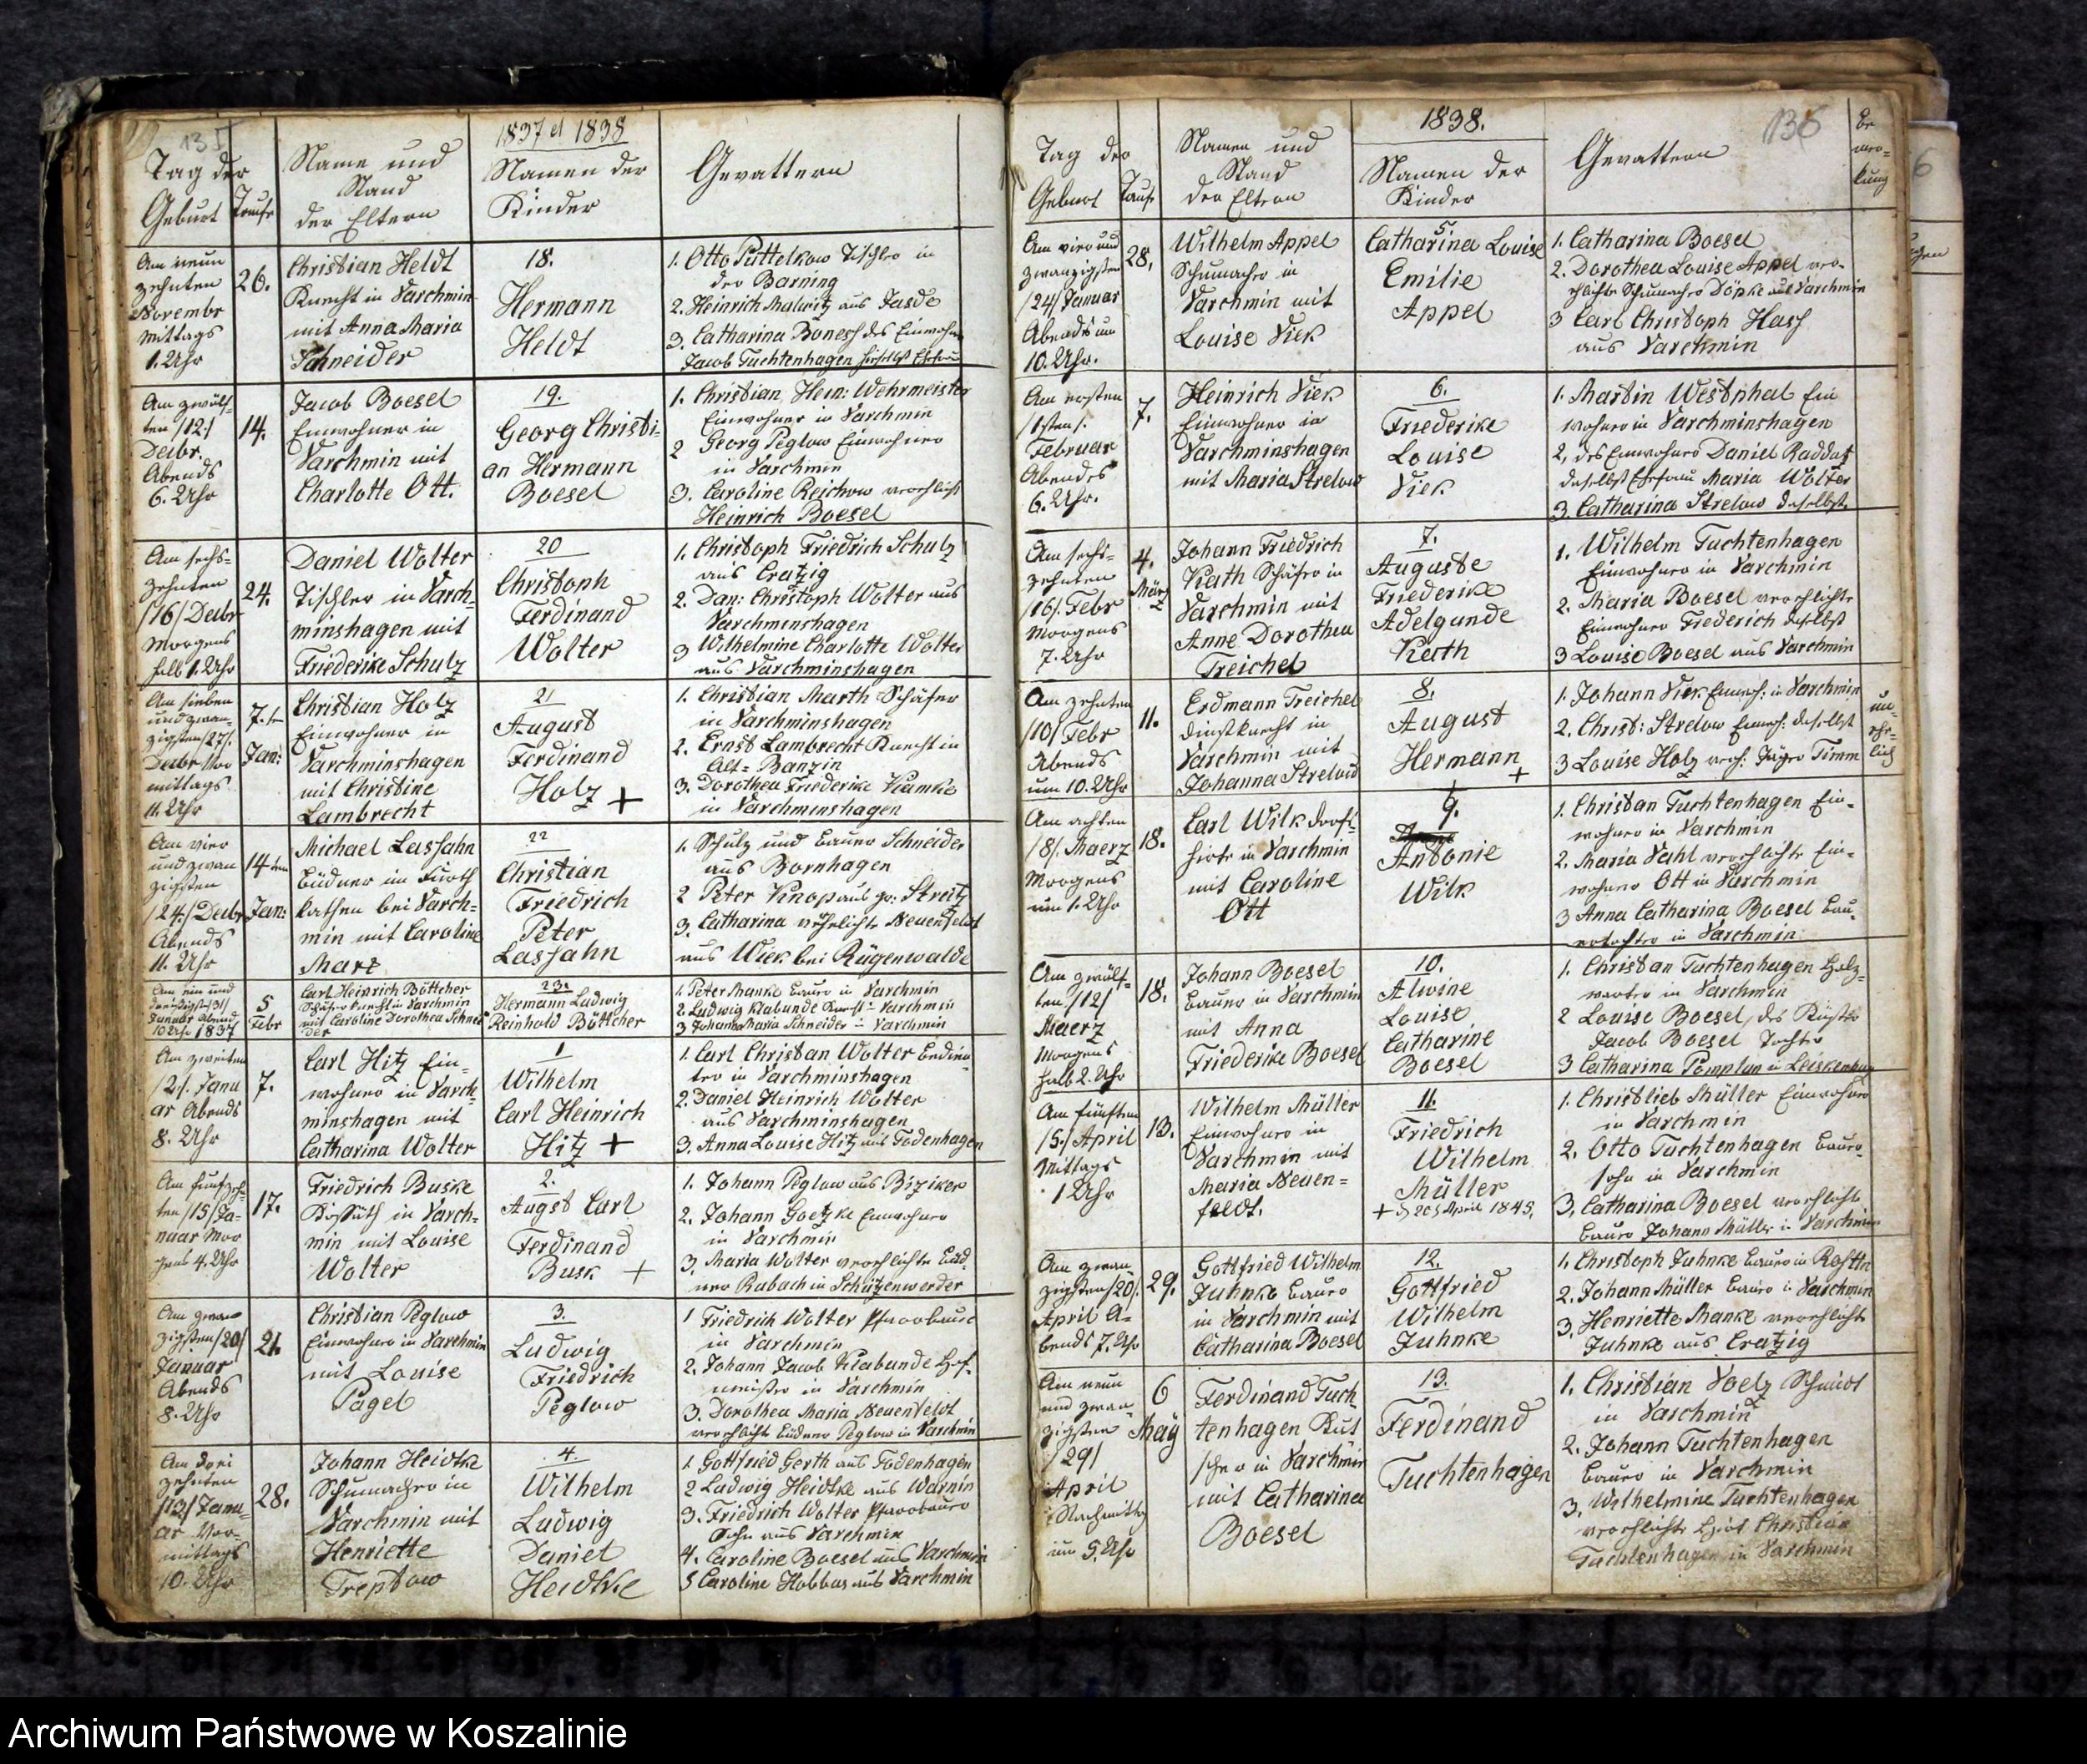 135
1837 et 1838
Tag der
Geburt Taufe
Name und
Stand
der Eltern
Namen der
Kinder
Gevattern
Am neun
zehnten
Novembr
Mittags
1. Uhr
26.
Christian Heldt
Knecht in Varchmin
mit Anna Maria
Schneider
18.
Hermann
Heldt
1. Otto Puttelkow Tischler in
der Barning
2. Heinrich Malwitz aus Jasde
3. Catharina Bonesß des Einwohn
Jacob Tuchtenhagen hieselbst Ehefrau
Am zwölf-
ten /12./
Decbr.
Abends
6. Uhr
14.
Jacob Boesel
Einwohner in
Varchmin mit
Charlotte Ott.
19.
Georg Christi-
an Hermann
Boesel
1. Christian Hein: Wehrmeister
Einwohner in Varchmin
2 Georg Peglow Einwohner
in Varchmin
3. Caroline Reichow verehlicht
Heinrich Boesel
Am sechs-
zehnten
/16/ Decbr
Morgens
halb 1. Uhr
24.
Daniel Wolter
Tischler in Varch-
minshagen mit
Friederike Schulz
20
Christoph
Ferdinand
Wolter
1. Christoph Friedrich Schulz
aus Cratzig
2. Dan: Christoph Wolter aus
Varchminshagen
3 Wilhelmine Charlotte Wolter
aus Varchminshagen
Am sieben
und zwan-
zigsten /27/.
Decbr Vor
mittags
11. Uhr
7. ten
Jan:
Christian Holz
Einwohner in
Varchminshagen
mit Christine
Lambrecht
21
August
Ferdinand
Holz +
1. Christian Marth Schäfer
in Varchminshagen
2. Ernst Lambrecht Knecht in
Alt-Banzin
3. Dorothea Friederike Kamke
in Varchminshagen
Am vier
und zwan
zigsten
/24./ Decbr
Abends
11. Uhr
14ten
Jan:
Michael Lassahn
Büdner im Furth
kathen bei Varch-
min mit Caroline
Marz
22
Christian
Friedrich
Peter
Lassahn
1. Schulz und Bauer Schneider
aus Bornhagen
2 Peter Knop aus gr: Streitz
3. Catharina verehelichte Neuenfeldt
aus Wiek bei Rügenwalde
Am ein und
dreißigst /31/
Januar Abend
10 Uhr 1837
5
Febr
Carl Heinrich Böttcher
Schäfer Knecht in Varchmin
mit Caroline Dorothea Schnei
der
23.
Hermann Ludwig
Reinhold Böttcher
1. Peter Manke Bauer in Varchmin
2 Ludwig Klabunde Knecht in Varchmin
3 Johanna Maria Schneider in Varchmin
Am zweiten
/2/. Janu
ar Abends
8. Uhr
7.
Carl Hitz Ein-
wohner in Varch-
minshagen mit
Catharina Wolter
1
Wilhelm
Carl Heinrich
Hitz +
1. Carl Christian Wolter Bedien
ter in Varchminshagen
2. Daniel Heinrich Wolter
aus Varchminshagen
3. Anna Louise Hitz aus Todenhagen
Am funfzeh-
ten /15/ Ja-
nuar Mor
gens 4. Uhr
17.
Friedrich Buske
Kossäth in Varch-
min mit Louise
Wolter
2.
Augst Carl
Ferdinand
Busk +
1. Johann Peglow aus Biziker
2. Johann Goetzke Einwohner
in Varchmin
3. Maria Wolter verehlichte Büd
ner Rubach in Schützenwerder
Am zwan
zigsten /20/
Januar
Abends
8. Uhr
21.
Christian Peglow
Einwohner in Varchmin
mit Louise
Pagel
3.
Ludwig
Friedrich
Peglow
1 Friedrich Wolter Pfarrbauer
in Varchmin
2. Johann Jacob Klabunde Hof-
meister in Varchmin
3. Dorothea Maria Neuenfeldt
verehlicht Büdner Peglow in Varchmin
Am drei
zehnten
/13/ Janu-
ar Vor-
mittags
10. Uhr
28.
Johann Heidtke
Schumacher in
Varchmin mit
Henriette
Treptow
4.
Wilhelm
Ludwig
Daniel
Heidtke
1. Gottfried Gerth aus Todenhagen
2 Ludwig Heidtke aus Warnin
3. Friedrich Wolter Pfarrbauer
Sohn aus Varchmin
4. Caroline Boesel aus Varchmin
5 Caroline Hobbus aus Varchmin
136
1838.
Tag der
Geburt Taufe
Namen und
Stand
der Eltern
Namen der
Kinder
Gevattern
Be
mer-
kung
Am vier und
zwanzigsten
/24/ Januar
Abends um
10. Uhr.
28.
Wilhelm Appel
Schumacher in
Varchmin mit
Louise Viek
5.
Catharina Louise
Emilie
Appel
1. Catharina Boesel
2. Dorothea Louise Appel ver-
ehlichte Schumacher Döpke aus Varchmin
3 Carl Christoph Hass
aus Varchmin
Am ersten
/1sten/.
Februar
Abendes
6. Uhr.
7.
Heinrich Viek
Einwohner in
Varchminshagen
mit Maria Strelow
6.
Friederike
Louise
Viek
1. Martin Westphal Ein
wohner in Varchminshagen
2, des Einwohners Daniel Raddatz
daselbst Ehefrau Maria Wolter
3. Catharina Strelow daselbst
Am sechs-
zehnten
/16/. Febr
Morgens
7. Uhr
4.
März
Johann Friedrich
Kath Schäfer in
Varchmin mit
Anne Dorothea
Treichel
7.
Auguste
Friederike
Adelgunde
Kath
1. Wilhelm Tuchtenhagen
Einwohner in Varchmin
2. Maria Boesel verehlichte
Einwohner Frederich daselbst
3 Louise Boesel aus Varchmin
Am zehnten
/10/ Febr
Abends
um 10. Uhr
11.
Erdmann Treichel
Dienstknecht in
Varchmin mit
Johanna Strelow
8.
August
Hermann
+
1. Johann Viek Einwoh: in Varchmin
2. Christ: Strelow Einwoh: daselbst
3 Louise Holz verh: Jäger Timm
un-
ehe-
lich
Am achten
/8/. Maerz
Morgens
um 1. Uhr
18.
Carl Wilk Dorf-
hirte in Varchmin
mit Caroline
Ott
9.
Antonie
Wilk
1. Christian Tuchtenhagen Ein-
wohner in Varchmin
2. Maria Vahl verehlichte Ein-
wohner Ott in Varchmin
3 Anna Catharina Boesel Bau-
ertochter in Varchmin
Am zwölf-
ten /12/
Maerz
Morgens
halb 2. Uhr
18.
Johann Boesel
Bauer in Varchmin
mit Anna
Friederike Boesel
10.
Alwine
Louise
Catharine
Boesel
1. Christian Tuchtenhagen Holz-
wärter in Varchmin
2 Louise Boesel, des Küster
Jacob Boesel Tochter
3 Catharina Pomplun in
Am fünften
/5./ April
Mittags
1 Uhr
13.
Wilhelm Müller
Einwohner in
Varchmin mit
Maria Neuen-
feldt.
11.
Friedrich
Wilhelm
Müller
+ d 20 April 1845.
1. Christlieb Müller Einwohner
in Varchmin
2. Otto Tuchtenhagen Bauer-
sohn in Varchmin
3. Catharina Boesel verehlicht
Bauer Johann Müller in Varchmin
Am zwan
zigsten /20/.
April A-
bends 7. Uhr
29.
Gottfried Wilhelm
Juhnke Bauer
in Varchmin mit
Catharina Boesel
12.
Gottfried
Wilhelm
Juhnke
1. Christoph Juhnke Bauer in
2. Johann Müller Bauer in Varchmin
3. Henriette Manke verehlicht
Juhnke aus Cratzig
Am neun
und zwan
zigsten
/29/
April
Nachmittag
um 5. Uhr
6
May
Ferdinand Tuch-
tenhagen Kut
scher in Varchmin
mit Catharina
Boesel
13.
Ferdinand
Tuchtenhagen
1. Christian Voelz Schmidt
in Varchmin
2. Johann Tuchtenhagen
Bauer in Varchmin
3. Wilhelmine Tuchtenhagen
verehlichte Hirt Christian
Tuchtenhagen in Varchmin
Archiwum Państwowe w Koszalinie